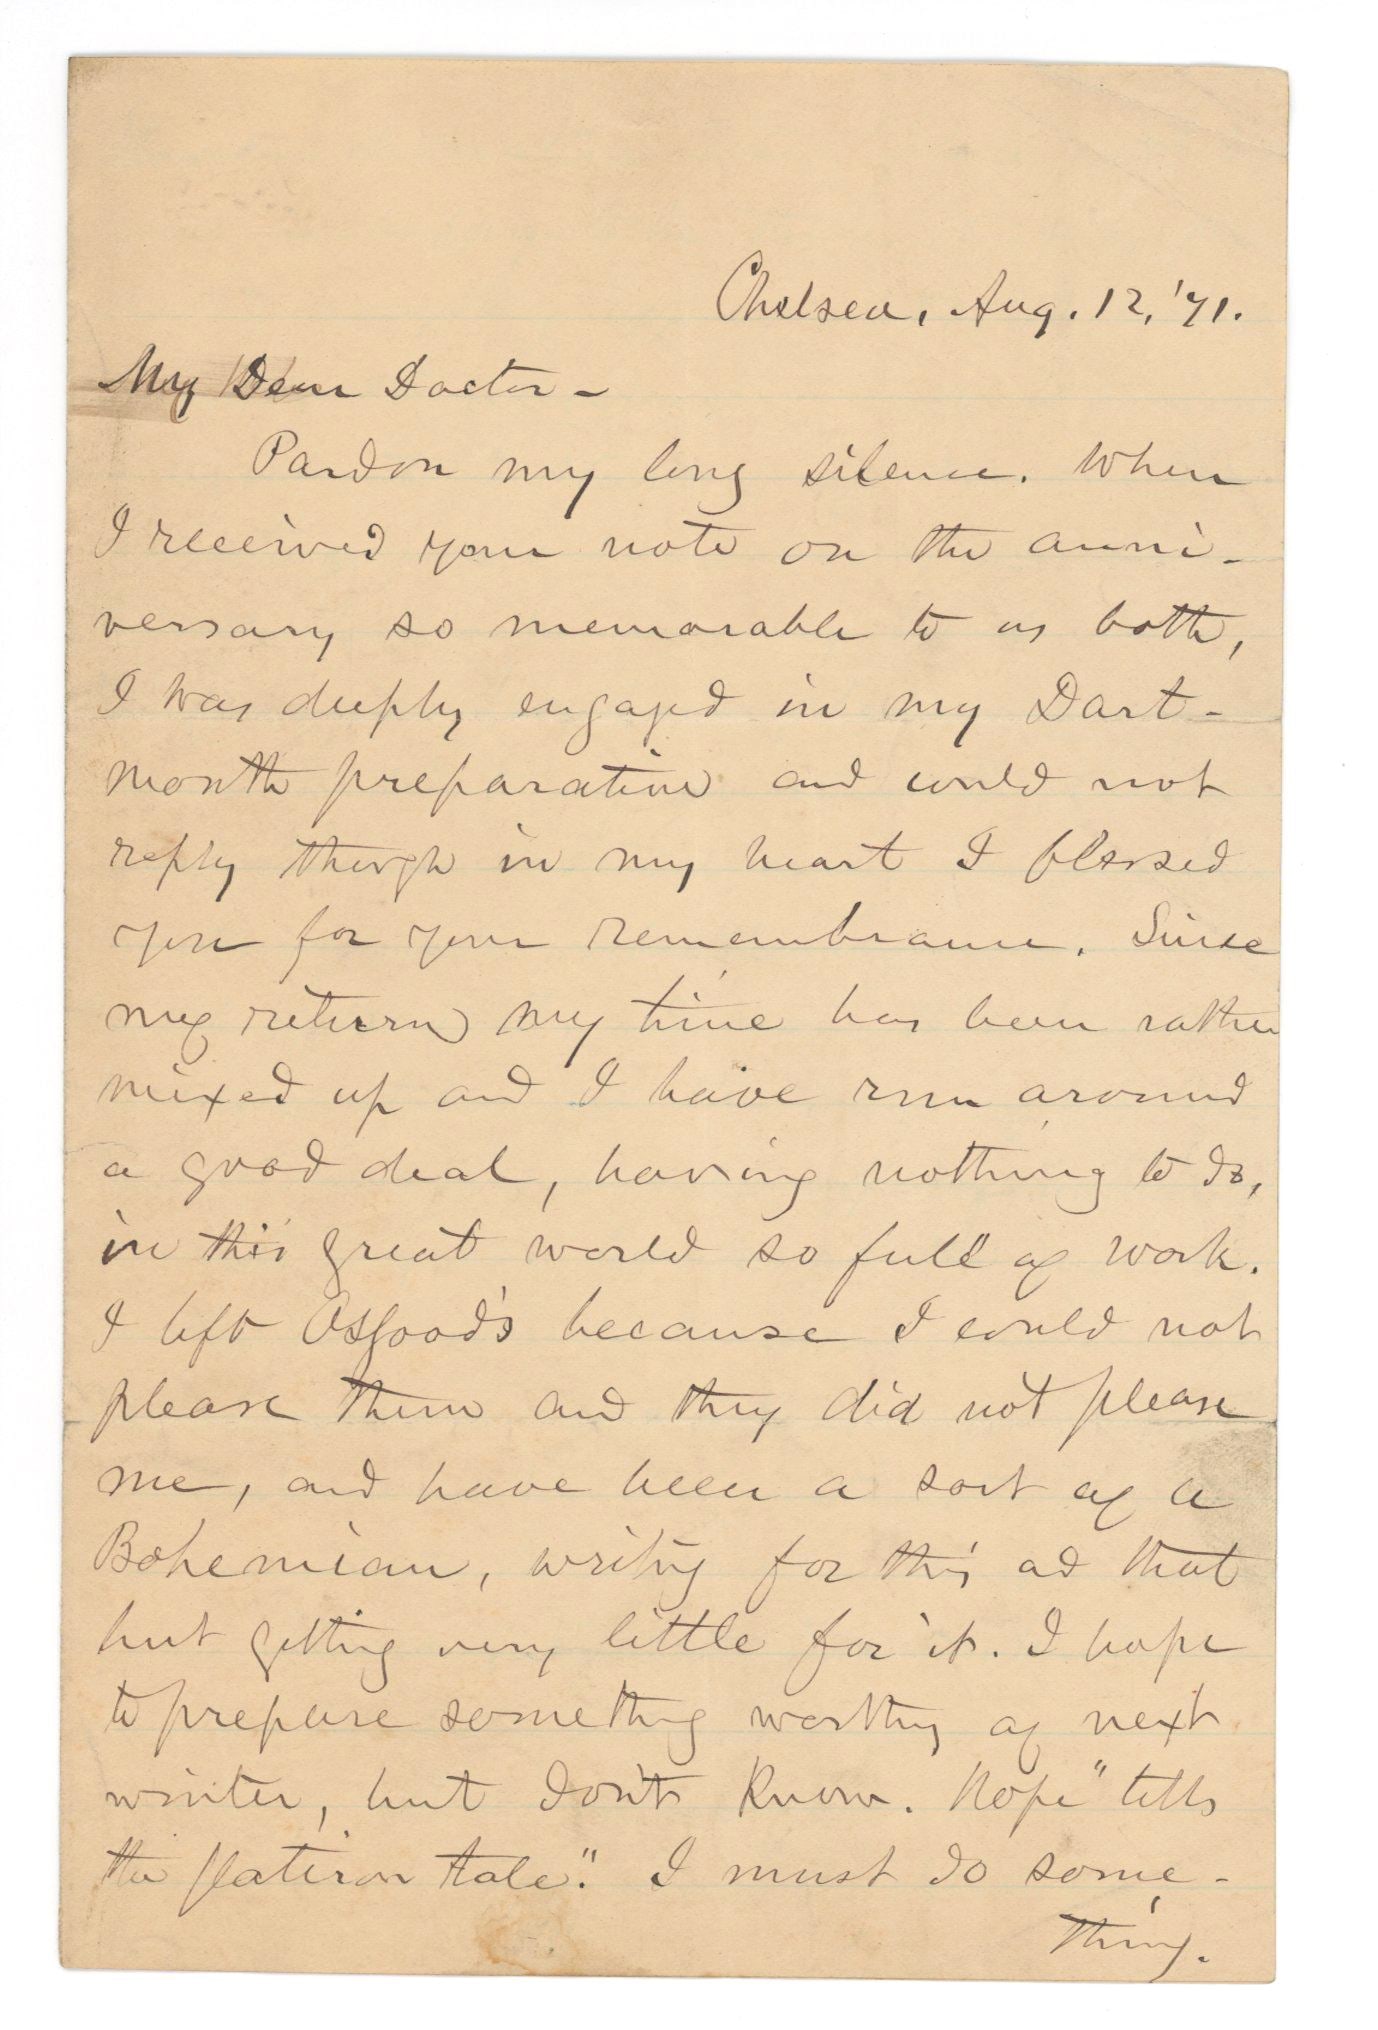 Chelsea, Aug. 12, '71.
My Dear Doctor -
Pardon my long silence. When
I received your note on the anni-
versary so memorable to us both,
I was deeply engaged in my Dart-
mouth preparation and could not
reply though in my heart I blessed
you for your remembrance. Since
my return my time has been rather
mixed up and I have run around
a good deal, having nothing to do,
in this great world so full of work.
I left Osgood's because I could not
please them and they did not please
me, and have been a sort of a
Bohemian, writing for this ad that
but getting very little for it. I hope
to prepare something worthy of next
winter, but don't know. Hope "tells
the flatiron tale." I must do some-
thing.